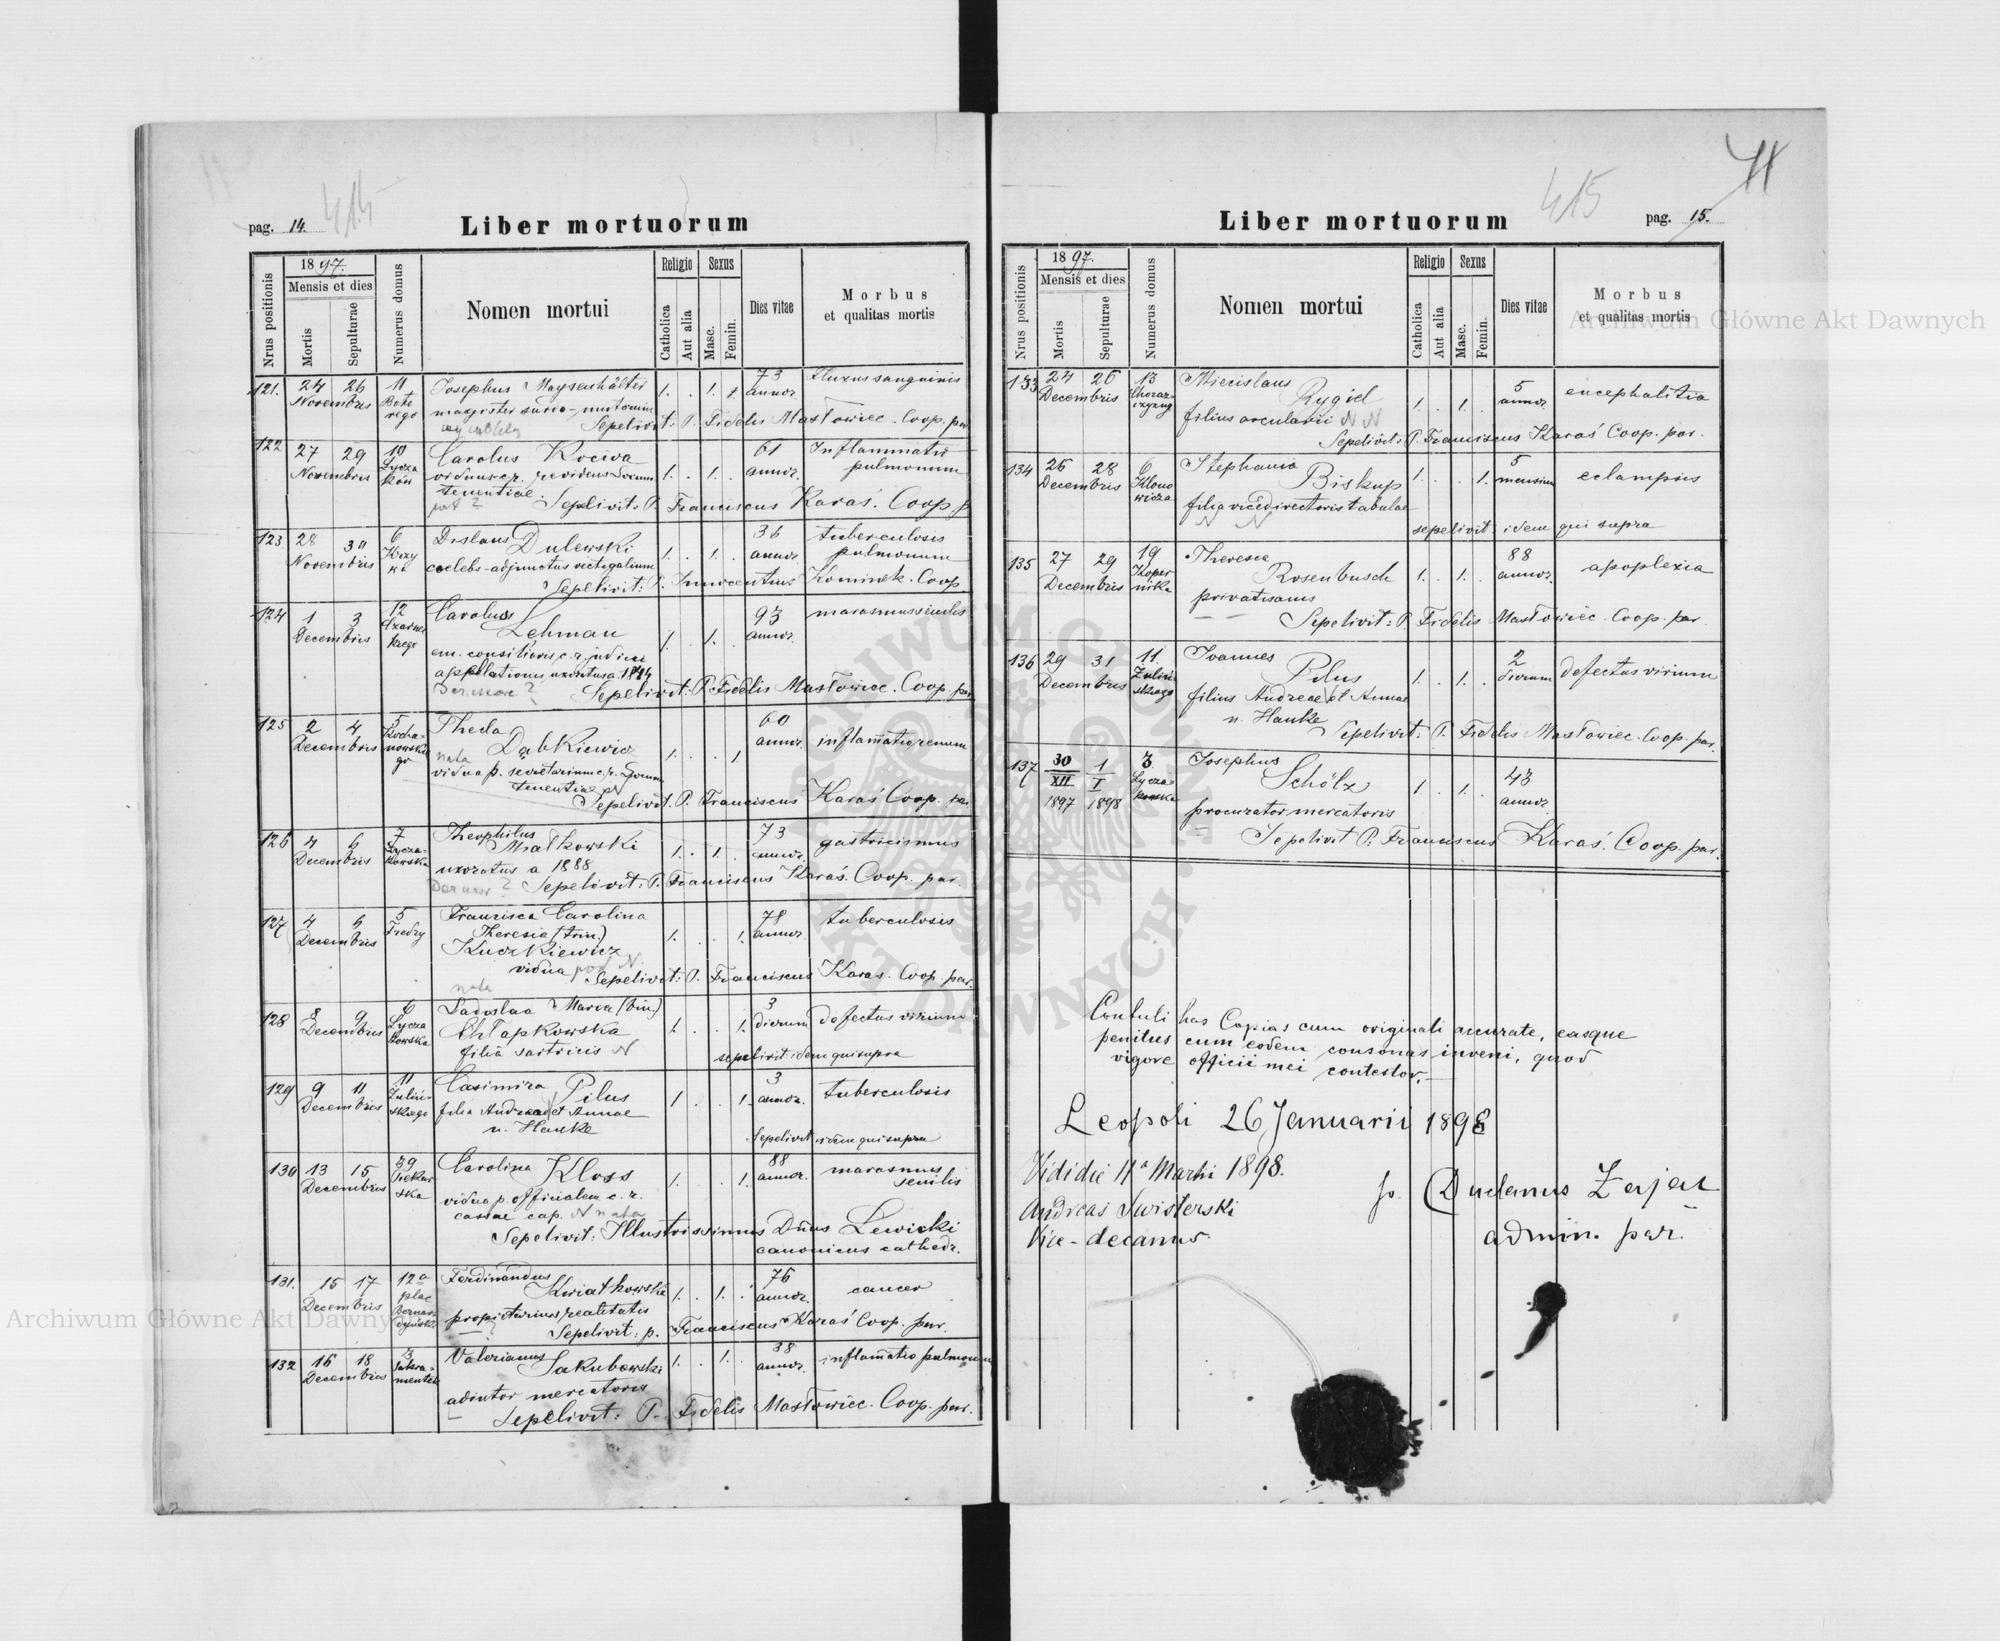 pag. 14.
414
Liber mortuorum
Nrus positionis
1897.
Mensis et dies
Mortis
Sepulturae
Numerus domus
Nomen mortui
Religio
Catholica
Aut alia
Sexus
Masc.
Femin.
Dies vitae
Morbus
et qualitas mortis
121. 24 26 11 Josephus 1. . 1. 73 fluxus sanguinis
Novembris Bato rego magister annor.
Sepelivit: P. Fidelis Masłowiec. Coop. par
122 27 29 10 Carolus Kociva 1. . 1. 61 Inflammatio
Novembris Łycza ków viduus c. r. annor. pulmonum
tenentiae. Sepelivit: P. Franciscus Karaś. Coop. p
123 28 30 6 Dulewski 1. . 1. 36 tuberculosis
Novembris Krzy coelebs adjunctus vectigalium annor. pulmonum
Sepelivit: P. Innocentius Kominek. Coop.
124 1 3 12 Carolus Lehman 1. . 1. 93 marasmus senilis
Decembris Czarnec kiego em. consiliarius c. r. judicii annor.
appellationis uxoratus a. 1844
Sepelivit: P. Fidelis Masłowiec. Coop. par
125 2 4 5 Thecla Dąbkiewicz 1. . . 1 60 inflammatio renum
Decembris Kocha- nowskie go nata annor.
vidua p. secretarium c. r. Locum
tenentiae pN
Sepelivit. P. Franciscus Karaś Coop. par
126 4 6 7 Theophilus Miałkowski 1. . 1. . 73 gastricismus
Decembris Łycza- kowska uxoratus a 1888 annor.
Sepelivit: P. Franciscus Karaś. Coop. par.
127 4 6 5 Francisca Carolina 78 tuberculosis
Decembris Fredry Theresia (trin.) 1. . . 1. annor
Kuczkiewicz
vidua post N.
nata
Sepelivit: P. Franciscus Karaś. Coop. par.
128 8 9 6 Ladoslaa Maria (bin.) 3 defectus virium
Decembris Łycza kowska Chłapkowska 1. . . 1. dierum
filia sartricis N
sepelivit idem qui supra
129 9 11 11 Casimira Pilus 1 . . 1. 3 tuberculosis
Decembris Zuliń- skiego filia Andreae et Annae annor.
n. Hauke
Sepelivit idem qui supra
130 13 15 39 Carolina Kloss 1. . . 1. 88 marasmus
Decembris Piekar ska vidua p. officialem c. r. annor. senilis
cassae cap. N nata
Sepelivit: Illustrissimus Dnus Lewicki
canonicus cathedr.
131. 15 17 12a Ferdinandus Kwiatkowski 1. . 1. . 76 cancer
Decembris plac Bernar- dyński proprietarius realitatis annor.
Sepelivit: p. Franciscus Karaś Coop. par.
132 16 18 3 Valerianus Jakubowski 1. . 1. 38 inflammatio pulmonum
Decembris Sakra- mentek adiutor mercatoris annor.
Sepelivit: P. Fidelis Masłowiec. Coop. par.
415
11
Liber mortuorum
pag. 15.
Nrus positionis
1897.
Mensis et dies
Mortis
Sepulturae
Numerus domus
Nomen mortui
Religio
Catholica
Aut alia
Sexus
Masc.
Femin.
Dies vitae
Morbus
et qualitas mortis
133 24 26 13 Miecislaus Rygiel 1. . 1. 5 encephalitia
Decembris Chorąż- czyzny filius arcularii N N annor.
Sepelivit: P. Franciscus Karaś Coop. par.
134 26 28 6 Stephania Biskup 1. . . 1. 5 eclampsis
Decembris Klono wicza filia vicedirectoris tabulae mensium
N N
sepelivit idem qui supra
135 27 29 19 Theresia Rosenbusch 1. . 1. 88 apoplexia
Decembris Koper nika privatisans annor.
Sepelivit: P. Fidelis Masłowiec. Coop. par.
136 29 31 11. Joannes Pilus 1. . 1. . 2 defectus virium
Decembris Zuliń skiego filius Andreae et Annae dierum
n. Hauke
Sepelivit: P. Fidelis Masłowiec. Coop. par.
137 30 XII 1897 1 I 1898 3 Łycza- kowska Josephus Schölz 1 . 1. . 43
procurator mercatoris annor
Sepelivit P. Franciscus Karaś. Coop. par.
Contuli has Copias cum originali accurate, easque
penitus cum eodem consonas inveni, quod
vigore officii mei contestor.
Leopoli 26 Januarii 1898
Vidi die 11a Martii 1898.
Andreas Swisterski
Vice-decanus.
admin. par.
Archiwum Główne Akt Dawnych
Archiwum Główne Akt Dawnych
ARCHIWUM GŁÓWNE AKT DAWNYCH